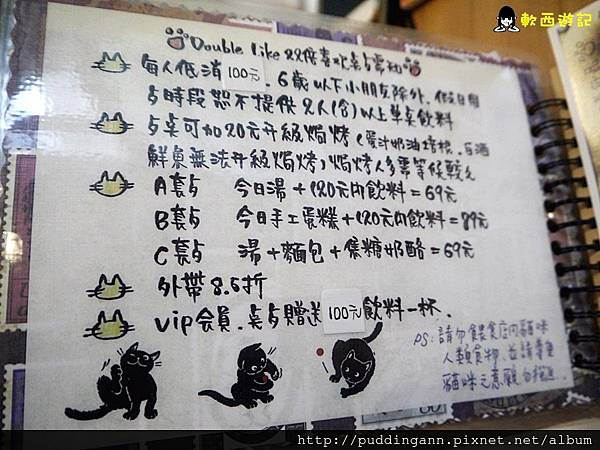 軟西遊記
Double like 22倍喜北桌瑪幼
每人低消 100元. 6歲以下小朋友除外. 假日用
時段恕不提供2人(含)以上單桌飲料
可加20元升級焗烤 (蛋汁奶油
鮮魚無法升級焗烤, 焗烤需等候較久
A套 今日湯+120元內飲料=69元
B套 今日手工蛋糕+120元內飲料=89元
C套 湯+麵包+焦糖奶酪=69元
外帶8.5折
vip會員. 贈送 100元 飲料一杯.
PS:請勿餵食店內貓咪
人類食物. 並請尊重
貓咪之意願
http://puddingann.pixnet.net/album